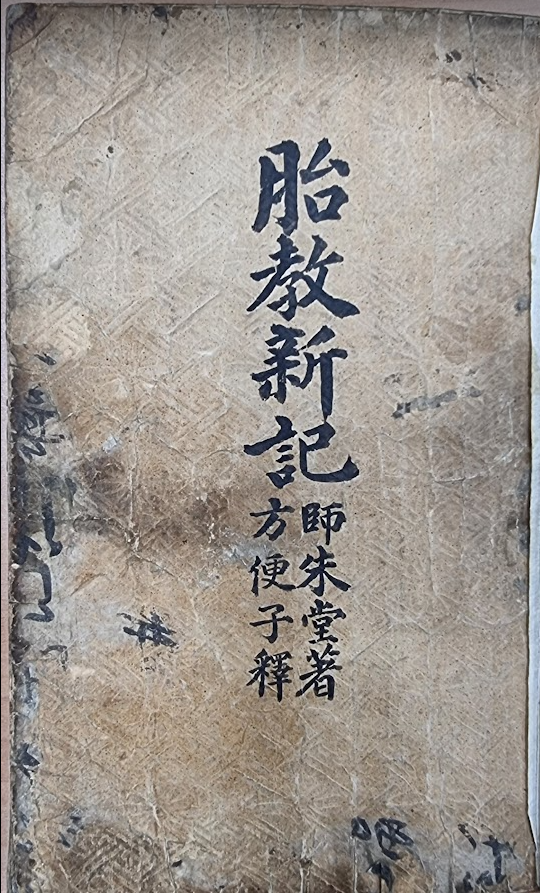 胎教新記
師朱堂著
方便子釋